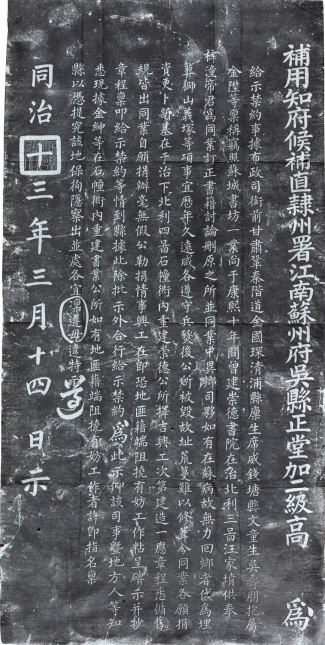 補用知府候補直隸州署江南蘇州府吳縣正堂加二級高 為
給示禁約事據布政司銜前甘肅鞏秦階道金國琛清浦縣廩生席威錢塘縣文童生吳志朋抱屬
金陞等稟稱竊照蘇城書坊一業向于康熙十年間曾建崇德書院在治北利三啚汪家墳供奉
梓潼帝君為同業訂正書籍討論刪原之所並同業中異鄉司夥如有在蘇病故無力回鄉者代為埋
葬獅山義塚等項事宜歷年久遠咸各遵守兵燹後公所被毀故址荒蔓難以修葺今同業各願捐
資更卜新基在于治下北利四啚石幢衖內重建崇德公所擇吉興工次第建造一應章程悉循舊
規皆出同業自願捐辦毫無假公勒捐情事興工在即恐地匪藉端阻撓有妨工作粘呈碑示並抄
章程稟叩給示禁約等情到縣據此除批示外合行給示禁約為此示仰該司事暨地方人等知
悉現據金紳等在石幢衖內重建書業公所如有地匪藉端阻撓有妨工作者許即指名稟
縣以憑提究該地保徇隱察出並處各宜凜遵毋違特示 遵
同治十三年三月十四日示